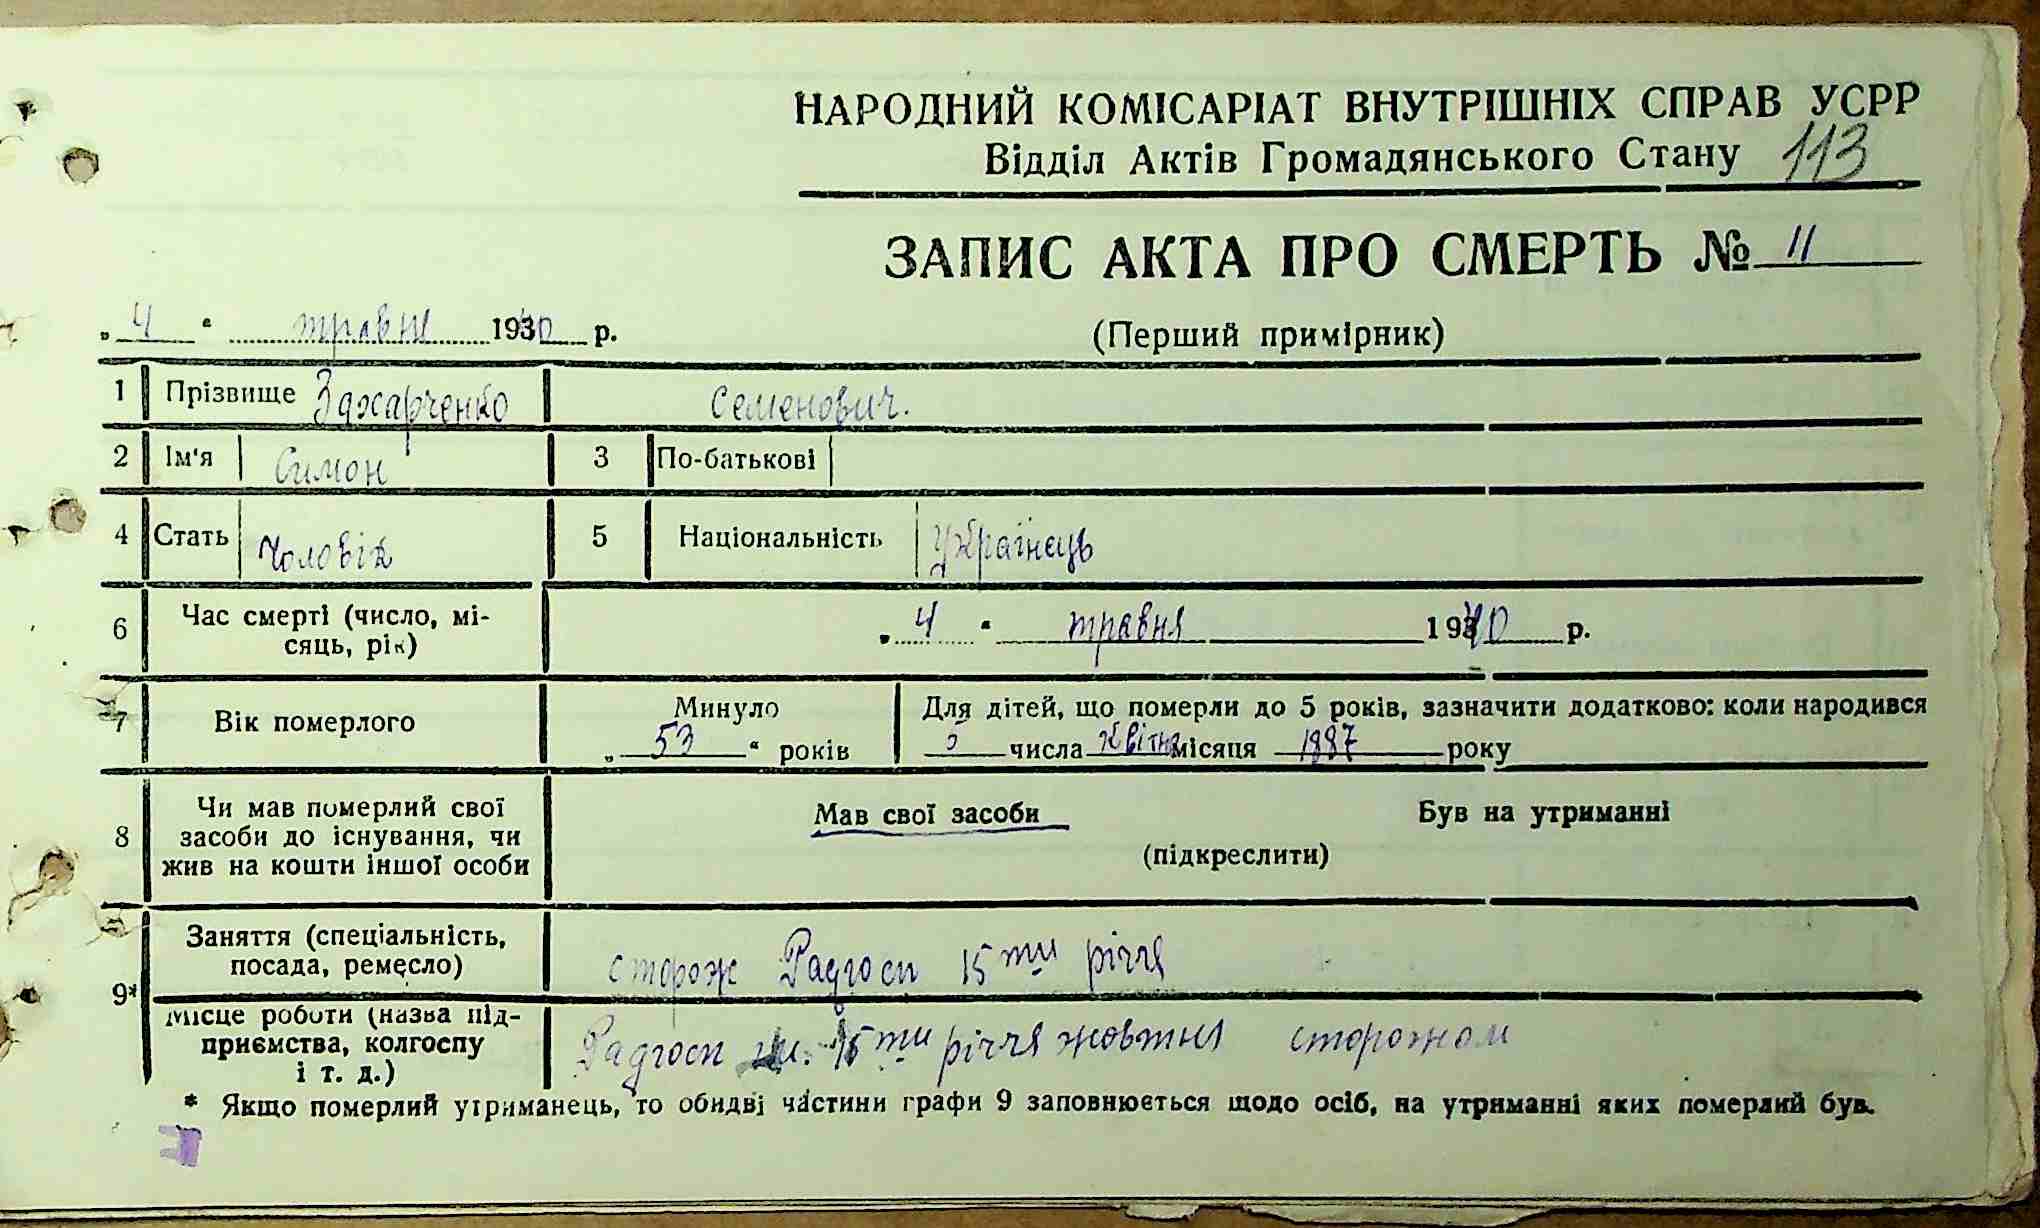 НАРОДНИЙ КОМІСАРІАТ ВНУТРІШНІХ СПРАВ УСРР
Відділ Актів Громадянського Стану 113
ЗАПИС АКТА ПРО СМЕРТЬ № 11
„ 4 “ травня 1940 р.
(Перший примірник)
1 Прізвище Захарченко Семенович.
2 Ім'я Симон 3 По-батькові
4 Стать Чоловік 5 Національність Українець
6 Час смерті (число, мі-
сяць, рік)
„ 4 “ травня 1940 р.
7 Вік померлого
Минуло
„ 53 “ років
Для дітей, що померли до 5 років, зазначити додатково: коли народився
числа Квітня місяця 1887 року
8 Чи мав померлий свої
засоби до існування, чи
жив на кошти іншої особи
Мав свої засоби Був на утриманні
(підкреслити)
9* Заняття (спеціальність,
посада, ремесло)
сторож Радгосп 15ти річчя
Місце роботи (назва під-
приємства, колгоспу
і т. д.)
Радгосп ім. 15ти річчя жовтня сторожом
* Якщо померлий утриманець, то обидві частини графи 9 заповнюється щодо осіб, на утриманні яких померлий був.